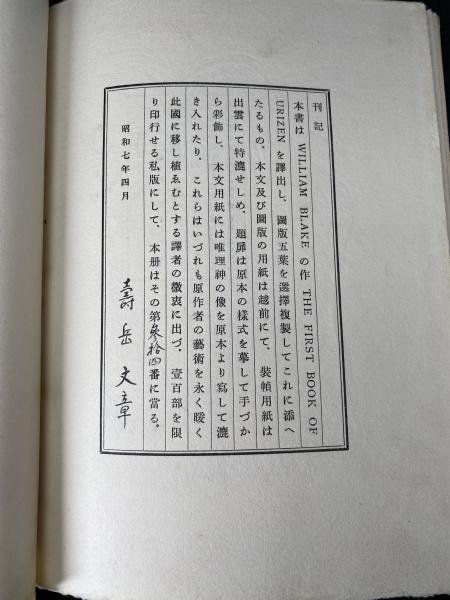 刊記
本書は WILLIAM BLAKE の作 THE FIRST BOOK OF
URIZEN を譯出し、圖版五葉を選擇複製してこれに添へ
たるもの、本文及び圖版の用紙は越前にて、裝幀用紙は
出雲にて特漉せしめ、題扉は原本の樣式を摹して手づか
ら彩飾し、本文用紙には唯理神の像を原本より寫して漉
き入れたり、これらはいづれも原作者の藝術を永く暖く
此國に移し植ゑむとする譯者の微衷に出づ、壹百部を限
り印行せる私版にして、本册はその第參拾四番に當る。
昭和七年四月
壽岳文章